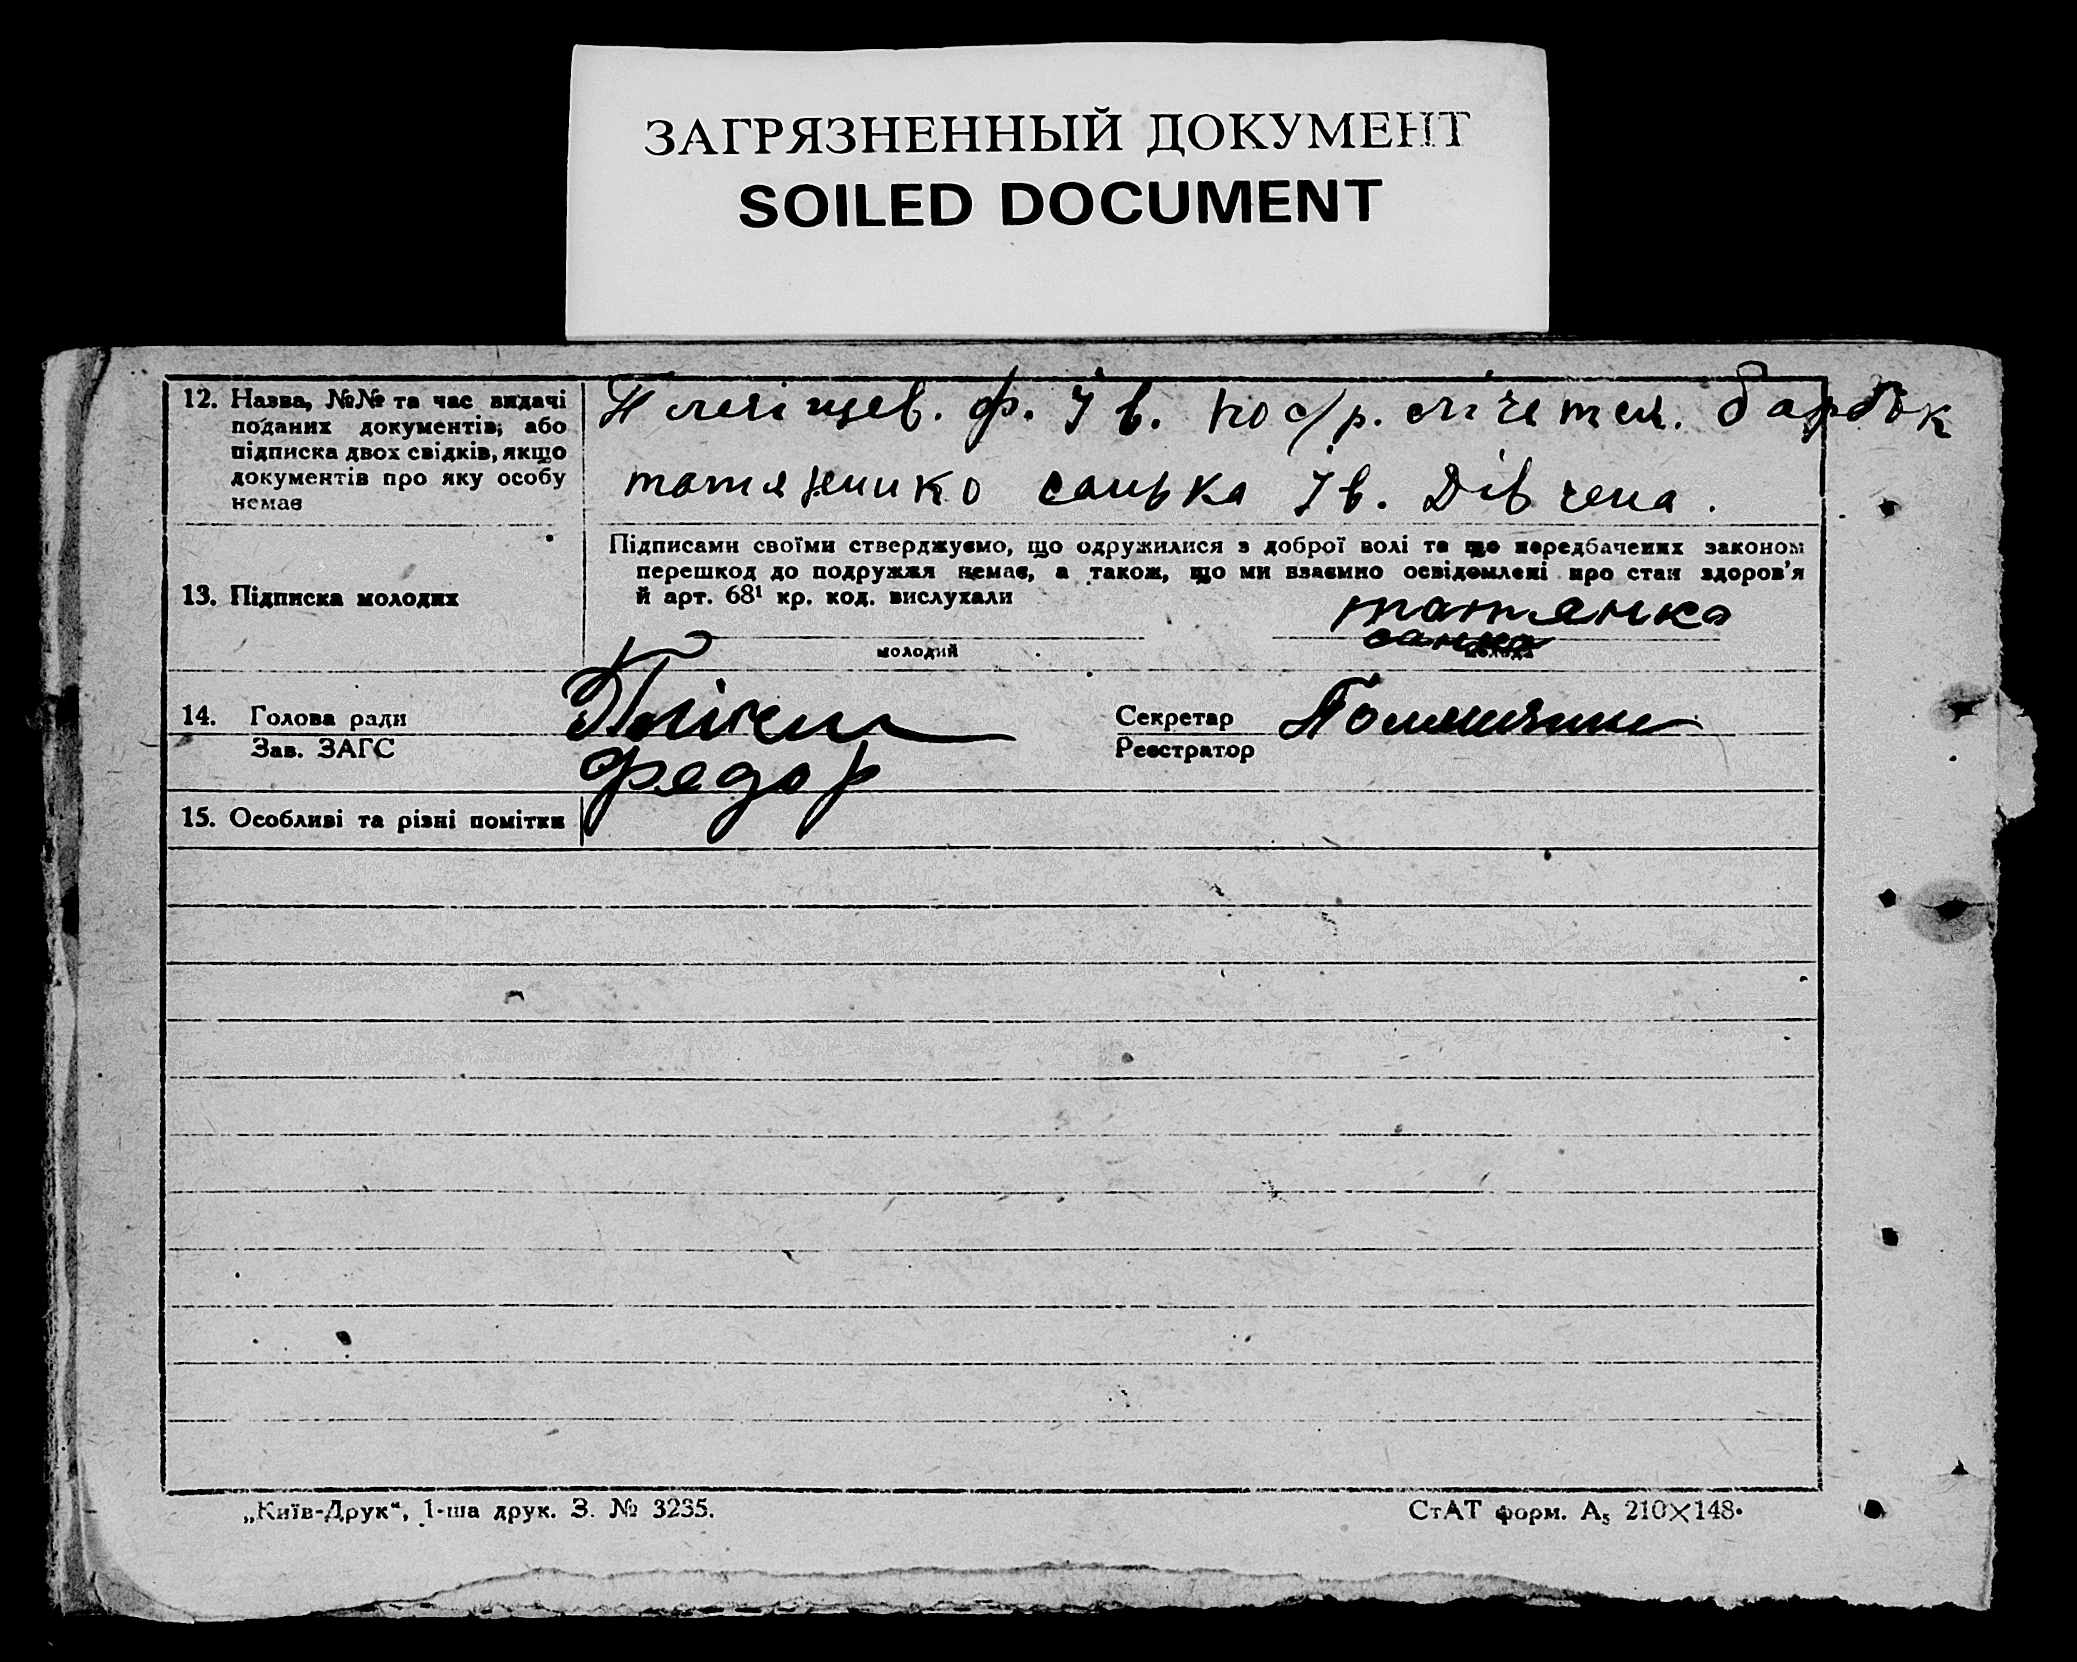 ЗАГРЯЗНЕННЫЙ ДОКУМЕНТ
SOILED DOCUMENT
12. Назва, №№ та час видачі
поданих документів; або
підписка двох свідків, якщо
документів про яку особу
немає
ф. Ів. по с/р.
санька Ів. Дівчена.
13. Підписка молодих
Підписами своїми стверджуємо, що одружилися з доброї волі та що передбачених законом
перешкод до подружжя немає, а також, що ми взаємно освідомлені про стан здоров'я
й арт. 68¹ кр. код. вислухали
татянко
санка
молодий
молода
14. Голова ради
Зав. ЗАГС
Федор
Секретар
Реєстратор
15. Особливі та різні помітки
„Київ-Друк“, 1-ша друк. З. № 3235.
СтАТ форм. А₅ 210×148.